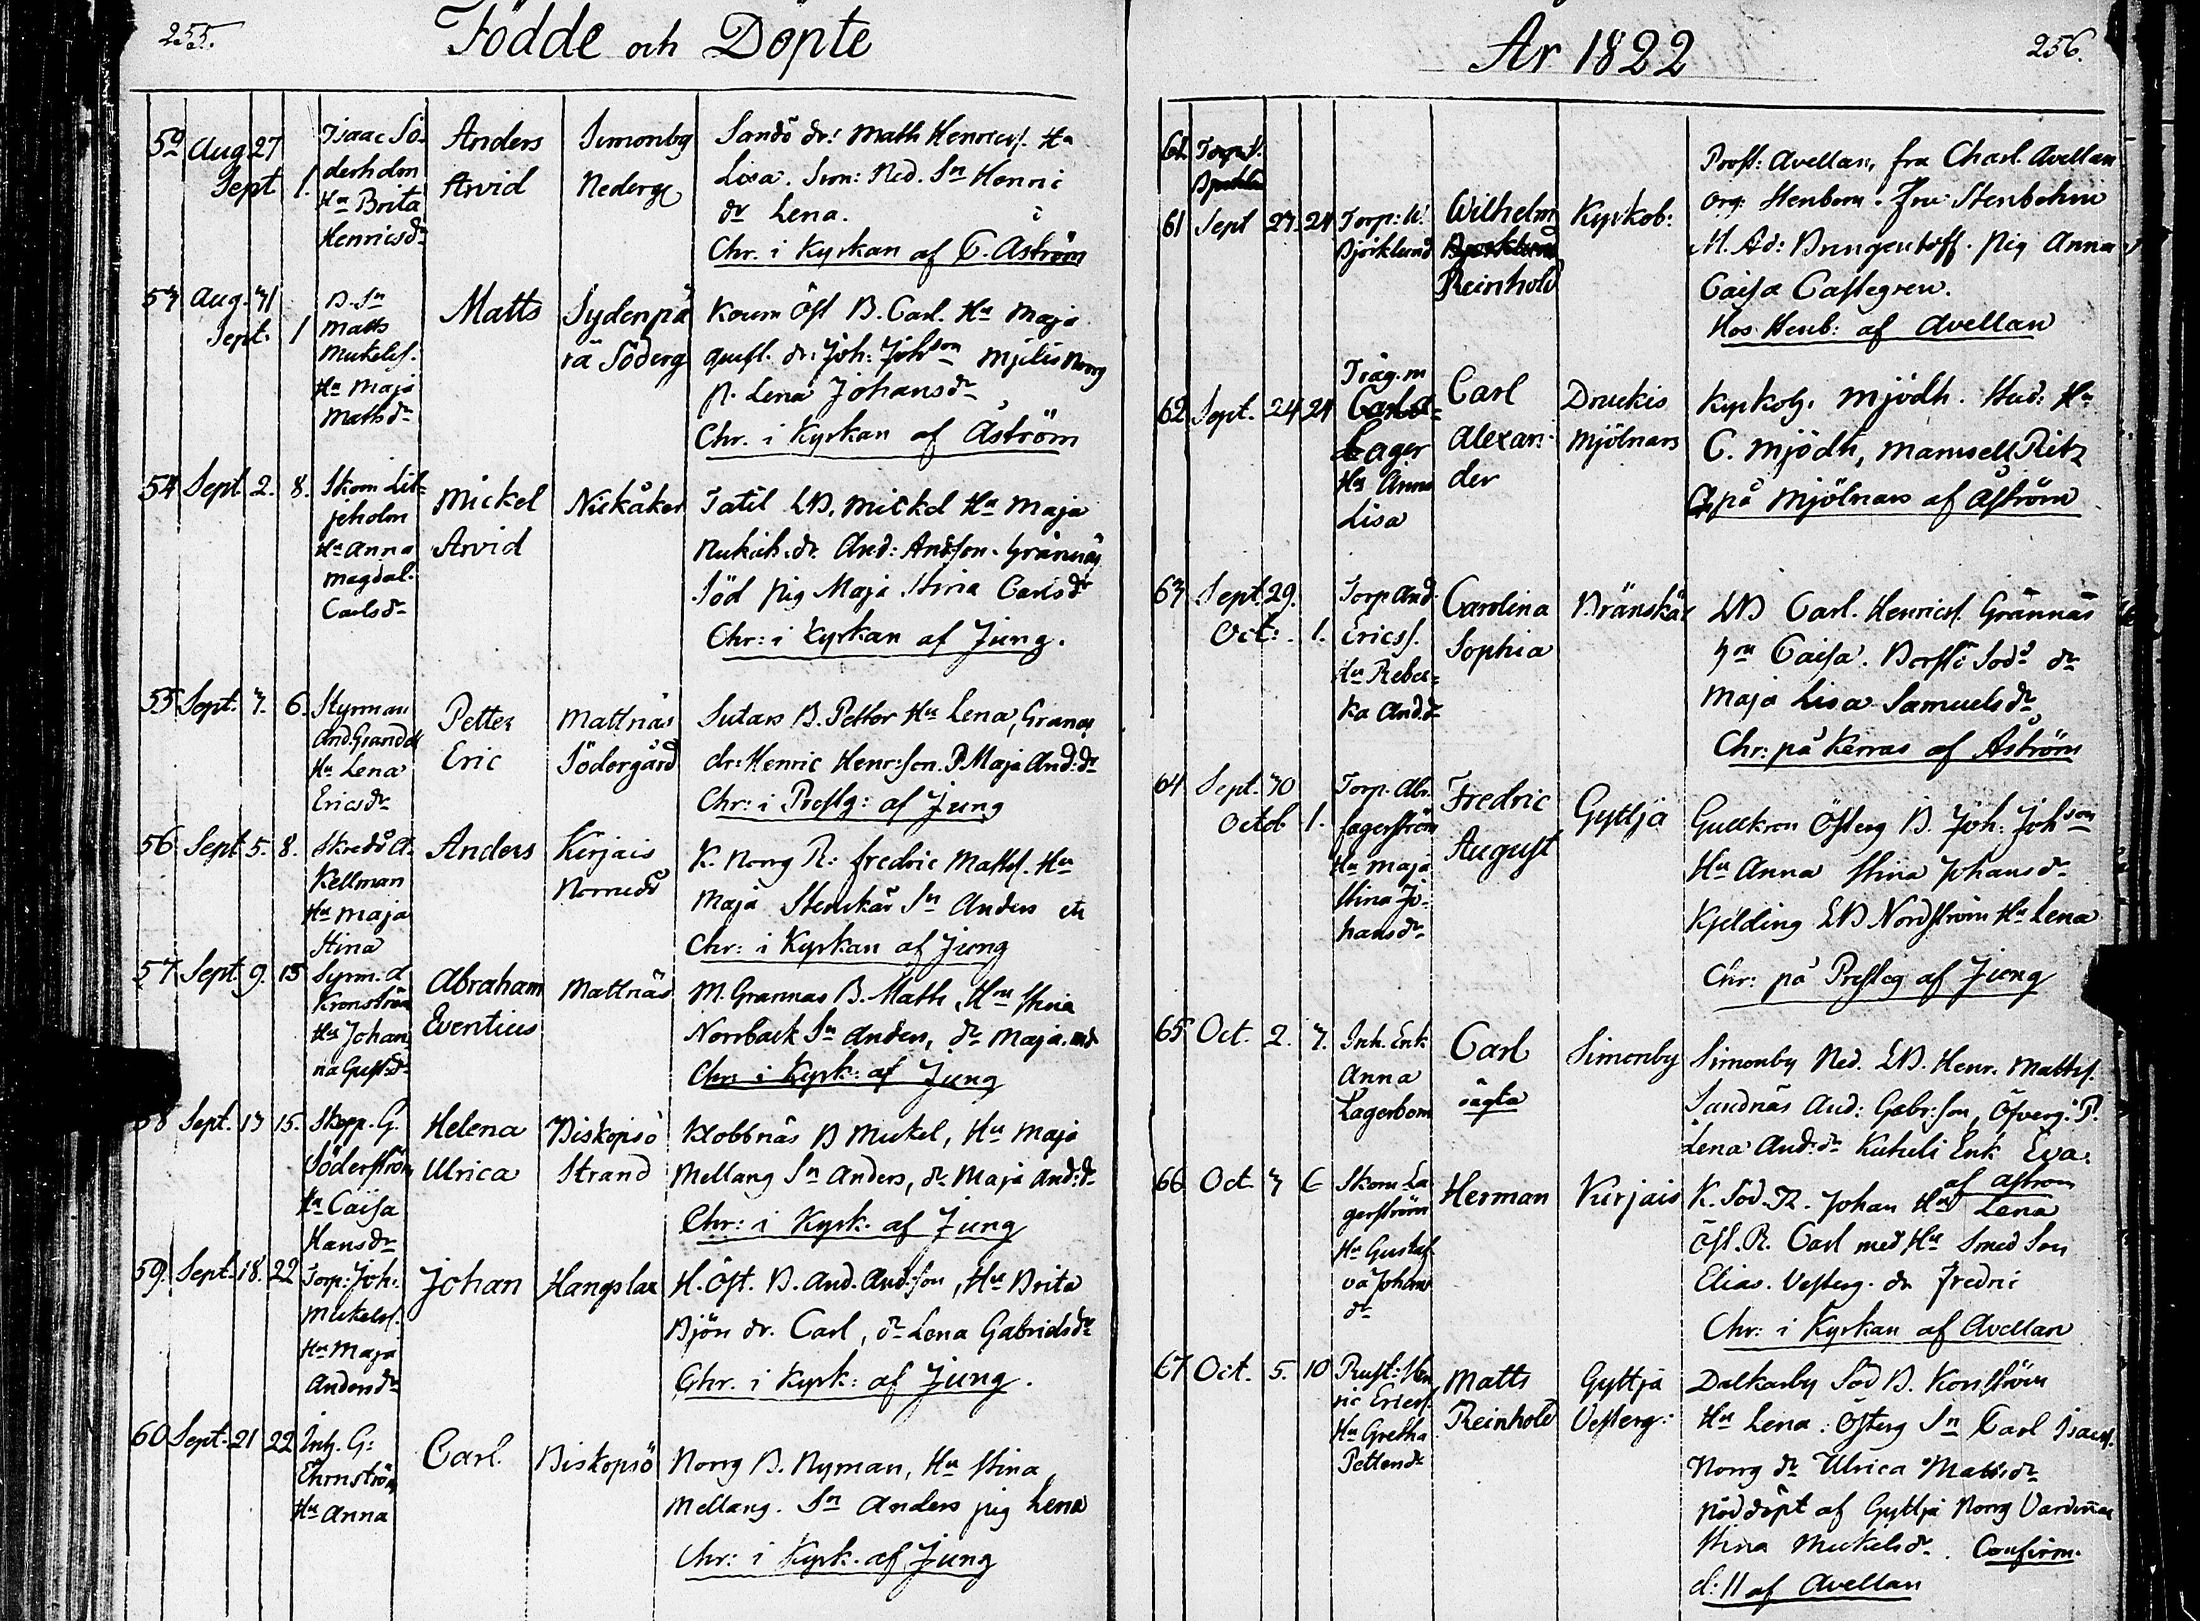 255.
Födde och Döpte
52 Aug. 27 Sept 1.
Isaac Sö-
derholm
Hu Brita
Henricsdr
Anders
Arvid
Simonbg
Nederg
Sandö dr: Math Henrics. Hu
Lisa. Sim: Ned. Sn Henric
dr Lena.
Chr. i Kyrkan af C. Åström
53 Aug. 31 Sept. 1
B. Sn
Matts
Mickels.
Hu Maja
Mathsdr
Matts
Sydenpä
rä Söderg
Korum Öst B. Carl. Hu Maja
dr: Joh: Johson Mjelis Norrg
p. Lena Johansdr
Chr. i Kyrkan af Åström
54 Sept. 2. 8.
Skom Lil-
jeholm
Hu Anna
Magdal.
Carlsdr
Mickel
Arvid
Nickåker
Tatil LB. Mickel Hu Maja
dr And: Andson. Grännäs
Söd pig Maja Stina Carlsdr
Chr: i Kyrkan af Jung.
55 Sept. 3. 6.
Styrman
And. Grandell
Hu Lena
Ericsdr
Petter
Eric
Mattnäs
Södergård
Sutars B. Petter Hu Lena, Granäs
dr: Henric Henr:son. P. Maja And:dr
Chr: i Prestg: af Jung
56 Sept. 5. 8.
Skredd A.
Kellman
Hu Maja
Stina
Anders
Kirjais
K. Norrg R: Fredric Matts. Hu
Maja Stenskär Sn Anders etc
Chr: i Kyrkan af Jung
57 Sept. 9. 15
Kronström
Hu Johan
na Gust:dr
Abraham
Eventius
Mattnäs
M. Grannas B. Math, Hu Stina
Norrback Sn Anders, dr Maja.
Chr: i Kyrk: af Jung
58 Sept. 13 15.
Skepp. G.
Söderström
Hu Caisa
Hansdr
Helena
Ulrica
Biskopsö
Strand
Klobbnäs B Mickel, Hu Maja
Mellang Sn Anders, dr Maja And:dr
Chr: i Kyrk. af Jung
59. Sept. 18. 22
Torp: Joh.
Mickels.
Hu Maja
Andersdr
Johan
Hangslax
H. Öst. B. And. And:son, Hu Brita
Björ dr. Carl, dr Lena Gabrielsdr
Chr. i Kyrk: af Jung.
60 Sept. 21 22
Inh. G:
Ehrnström
Hu Anna
Carl.
Biskopsö
Norrg B. Nyman, Hu Stina,
Mellang. Sn Anders pig Lena
Chr: i Kyrk. af Jung
År 1822
256.
61 Sept 23. 24
Torp: W.
Björklund
Wilhelm
Björklund
Reinhold
Kyrkob:
Prost: Avellan, fru Charl. Avellan
Org: Stenbom. Fru Stenbohm
M. Ad: Bungentoff. Pig Anna
Caisa Castegren.
Hos Stenb: af Avellan
62 Sept. 24 24
Träg. m
Lager
Hu Anna
Lisa
Carl
Alexan-
der
Druckis
Mjölnars
Kyrkobg. Mjödh. Hu
C. Mjödh, Mamsell Ritz
Ch. på Mjölnars af Åström
63 Sept. 29. Oct: 1.
Torp And.
Erics.
Hu Rebec-
ka And.dr
Carolina
Sophia
Bränskär
LB Carl. Henrics. Grännäs
Caisa. dr
Maja Lisa Samuelsdr
Chr: på Kerras af Åström
64 Sept. 30 Octob 1.
Torp. Abr.
Fagerström
Hu Maja
Stina Jo-
hansdr
Fredric
August
Gyttja
Gullkron Österg B. Joh: Johson
Hu Anna Stina Johansdr
Kjelding LB Nordström Hu Lena
Chr: på Presteg af Jung
65 Oct. 2. 3.
Inh. Enk
Anna
Lagerbom
Carl
oägta
Simonby
Simonby Ned. LB. Henr. Matts.
Sandnäs And: Gabr:son, Öfverg. P.
Lena And:dr Kutuli Enk Eva.
af Åström
66 Oct. 3 6
Skom La
gerström
Hu Gustaf
va Johans
dr
Herman
Kirjais
K. Söd. R. Johan Hu Lena
Öst. R. Carl med Hu Smed Son
Elias. Vesterg. dr Fredric
Chr: i Kyrkan af Avellan
67 Oct. 5. 10
Rust: Hen
ric Erics.
Hu Gretha
Pettersdr
Matts
Reinhold
Gyttja
Vesterg:
Dalkarby Söd B. Konström
Hu Lena: Österg Sn Carl Isacs.
Norrg dr Ulrica Mattsdr
nöddöpt af Gyttja Norrg Värdinnan
Stina Mickelsdr. Confirm.
d: 11 af Avellan